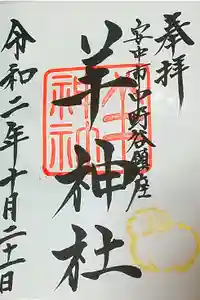 奉拝
安中市中野谷鎮座
羊神社
羊神社
令和二年十月二十一日